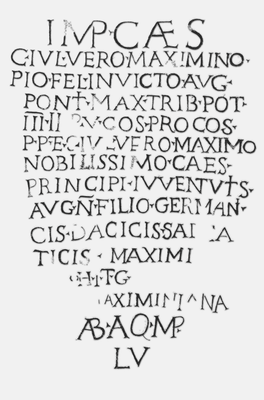 IMP·CÆS
G·IVL·VERO·MAXIMINO·
PIO·FEL·INVICTO·AVG·
PONT·MAX·TRIB·POT·
COS·PROCOS·
P·P·ET·G·IVL·VERO·MAXIMO
NOBILISSIMO·CAES·
PRINCIPI·IVVENTVTS·
AVG·N̄·FILIO·GERMAN·
CIS·DACICIS·SA
TICIS·MAXIMI
AXIMINIANA
AB·AQ·MP
LV